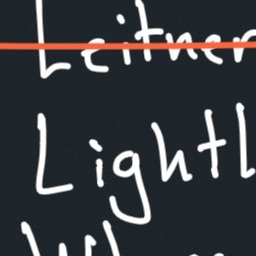 Leitner
Lightl